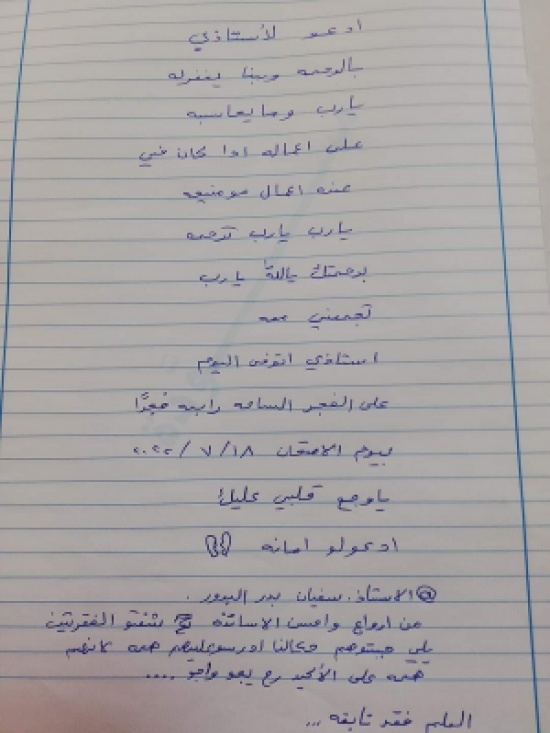 ادعو لأستاذي
بالرحمه وربنا يغفرله
يارب وما يحاسبه
على اعماله اذا كان في
عنه اعمال مو منيحه
يارب يارب ترحمه
برحمتك ياالله يارب
تجمعني معه
استاذي اتوفى اليوم
على الفجر الساعه رابعه فجرًا
بيوم الامتحان ٢٠٢٢/٧/١٨
ياوجع قلبي عليك!
ادعولو امانه
@الاستاذ. سفيان بدر البدور.
من ارواع واحسن الاساتذه شفتو الفقرتين
يلي جبتوهم وقالنا ادرسو عليهم همه لانهم
همه على الأكيد رح يجو واجو ....
العلم فقد تابقه ...